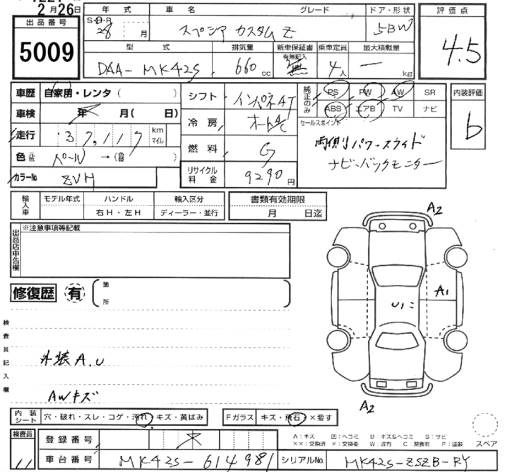 2月26日
出品番号
5009
年式 車名 グレード ドア・形状
S・H・R 28 月 スペシア カスタム Z 5BW
型式 排気量 新車保証書 乗車定員 最大積載量
有無記入
DAA-MK42S 660cc 無 4人 ― kg
評価点
4.5
車歴 自家用・レンタ( )
車検 年 月( 日)
走行 37,117 km マイル
色 パール→(替)
カラーNo ZVH
シフト インパネAT
冷房 オートAC
燃料 G
リサイクル料金 9290円
純正のみ PS PW AW SR
ABS エアB TV ナビ
セールスポイント
両側パワースライド
ナビ・バックモニター
内装評価
b
輸入車 モデル年式 ハンドル 輸入区分
右H・左H ディーラー・並行
書類有効期限
月 日迄
出品店申告欄
※注意事項等記載
修復歴 有 ( 箇所
検査員記入欄
外装A.U
AWキズ
A2
A1
U1
A2
内装シート 穴・破れ・スレ・コゲ・汚れ・キズ・黄ばみ
Fガラス キズ・飛石・×要す
スペア
検査員
登録番号
車台番号 MK42S-614981
シリアルNo. MK42S-ZSZB-RY